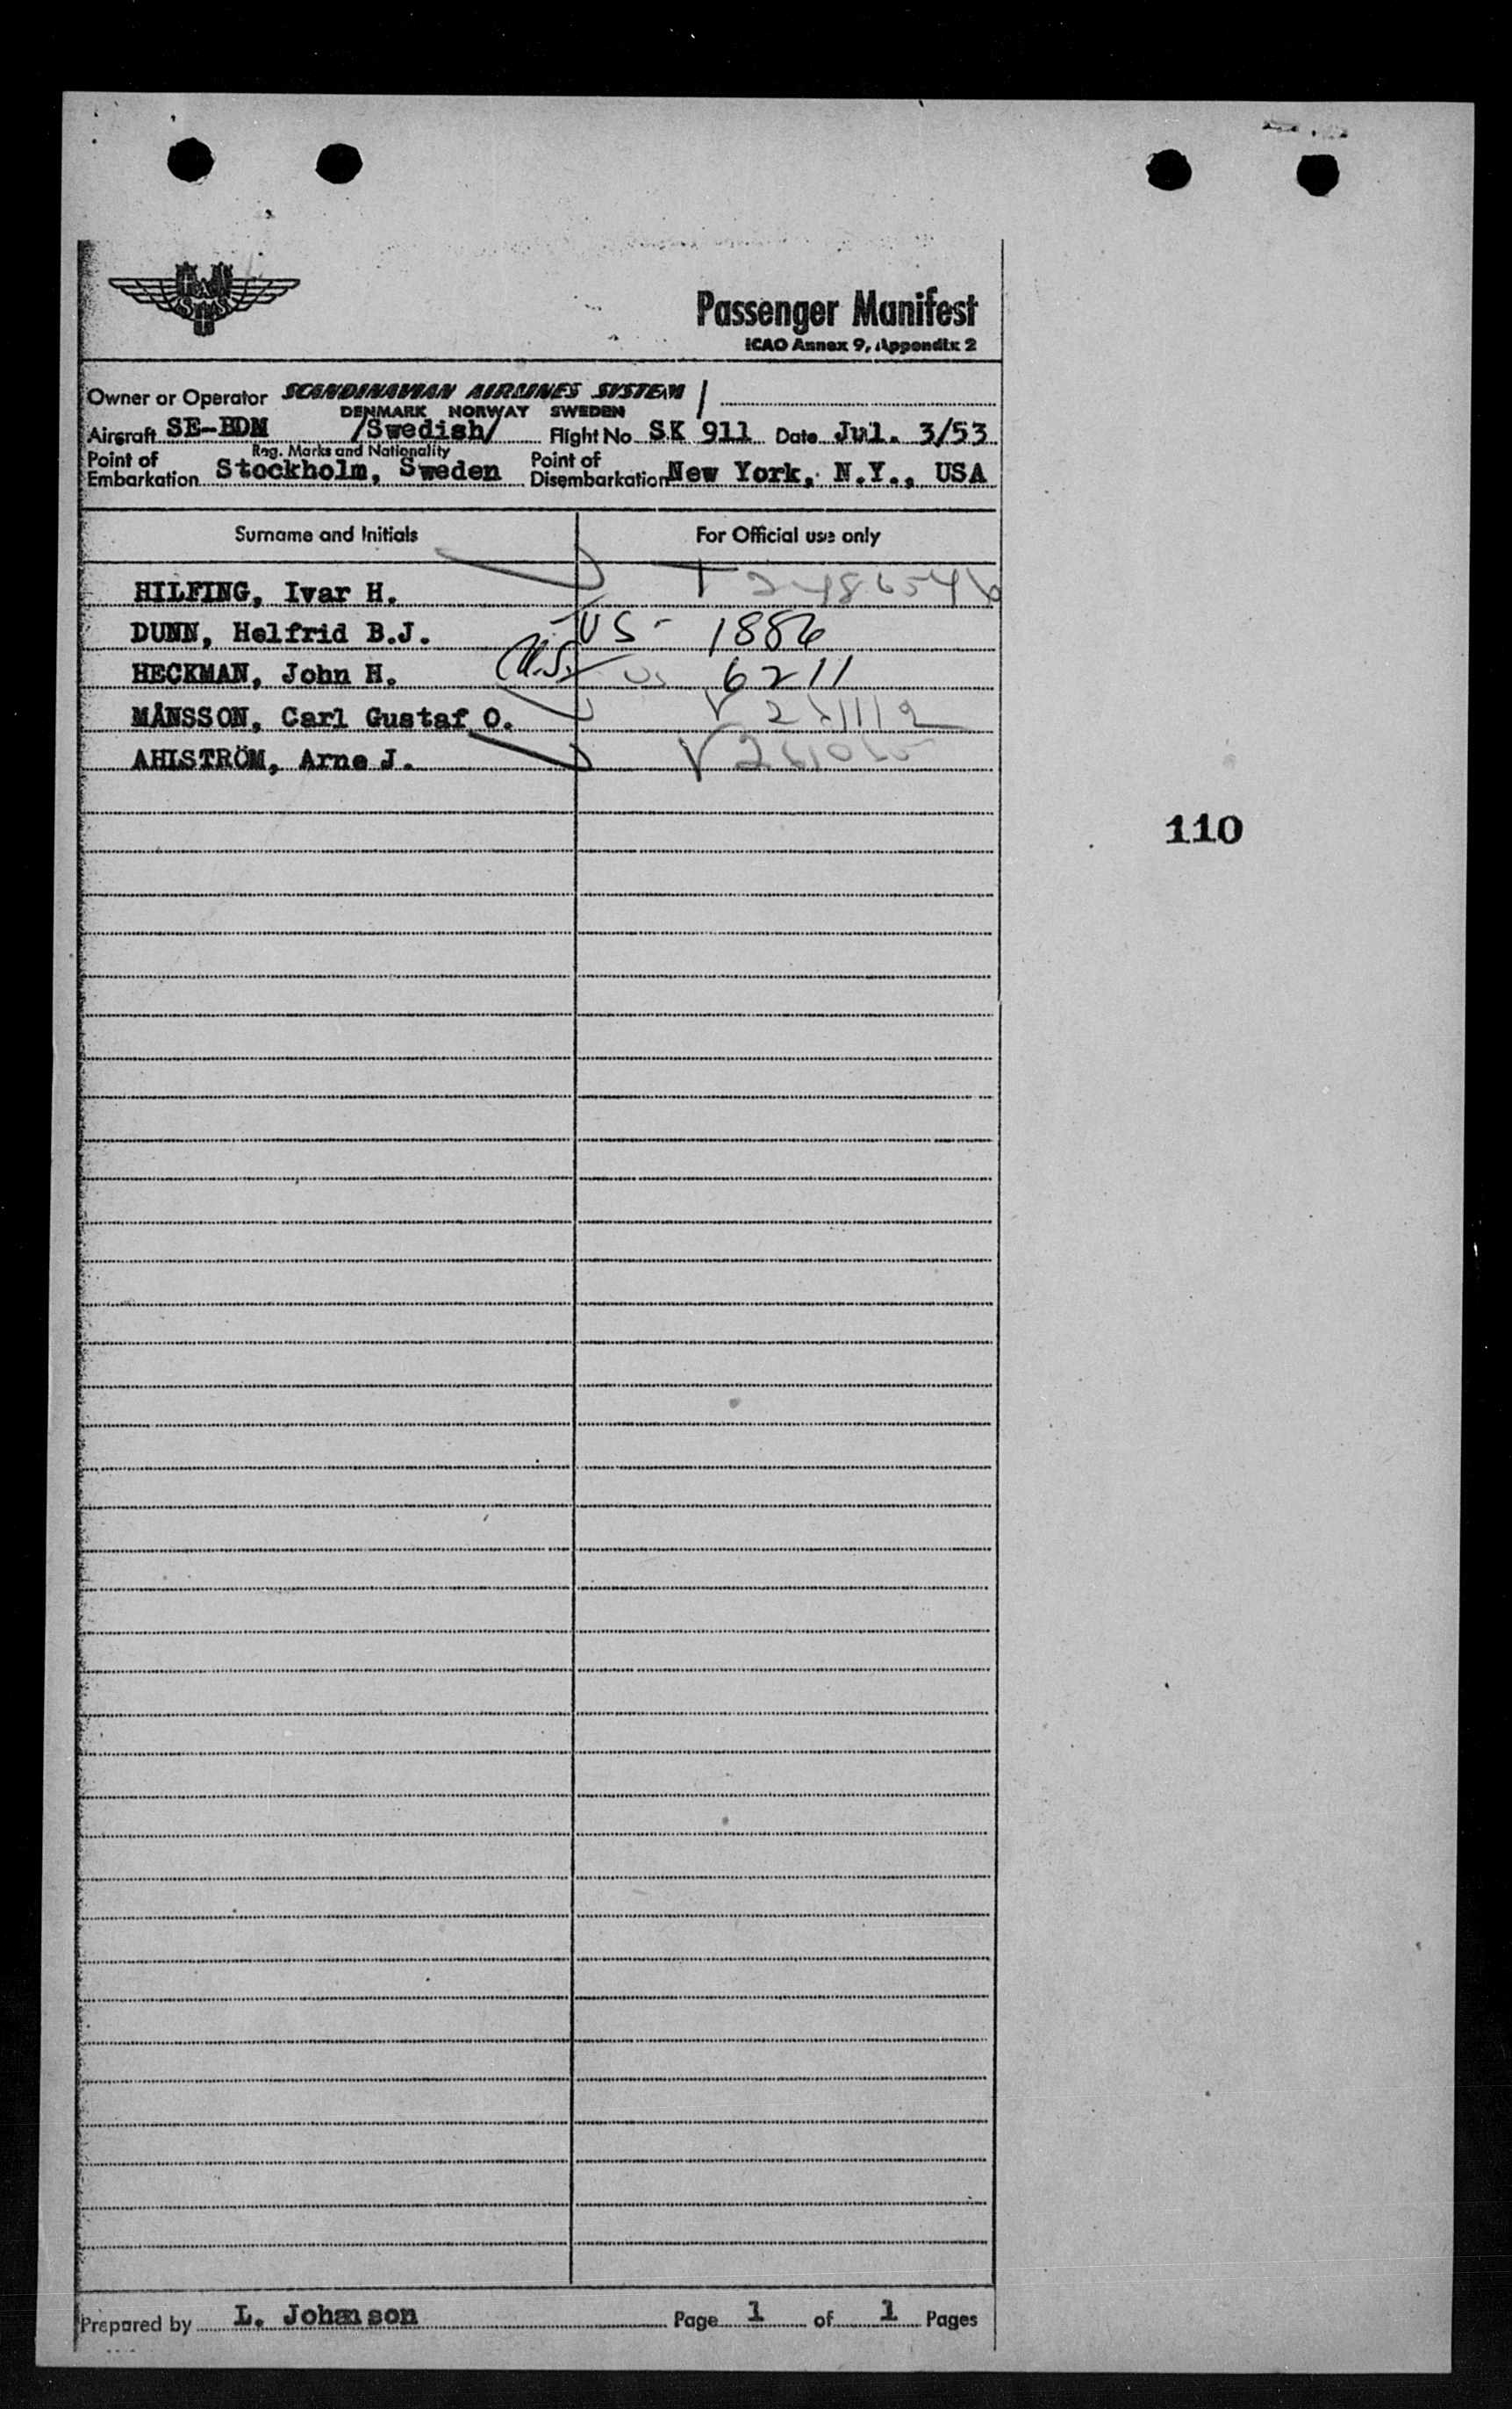 Passenger Manifest
ICAO Annex 9, Appendix 2
Owner or Operator SCANDINAVIAN AIRLINES SYSTEM
DENMARK NORWAY SWEDEN
Aircraft SE-BDM /Swedish/ Flight No SK 911 Date Jul. 3/53
Reg. Marks and Nationality
Point of Embarkation Stockholm, Sweden Point of Disembarkation New York, N.Y., USA
Surname and Initials For Official use only
HILFING, Ivar H.
DUNN, Helfrid B.J. US - 1886
HECKMAN, John H. U.S. US 6211
MÅNSSON, Carl Gustaf O. V
AHLSTRÖM, Arne J. V
110
Prepared by L. Johanson Page 1 of 1 Pages